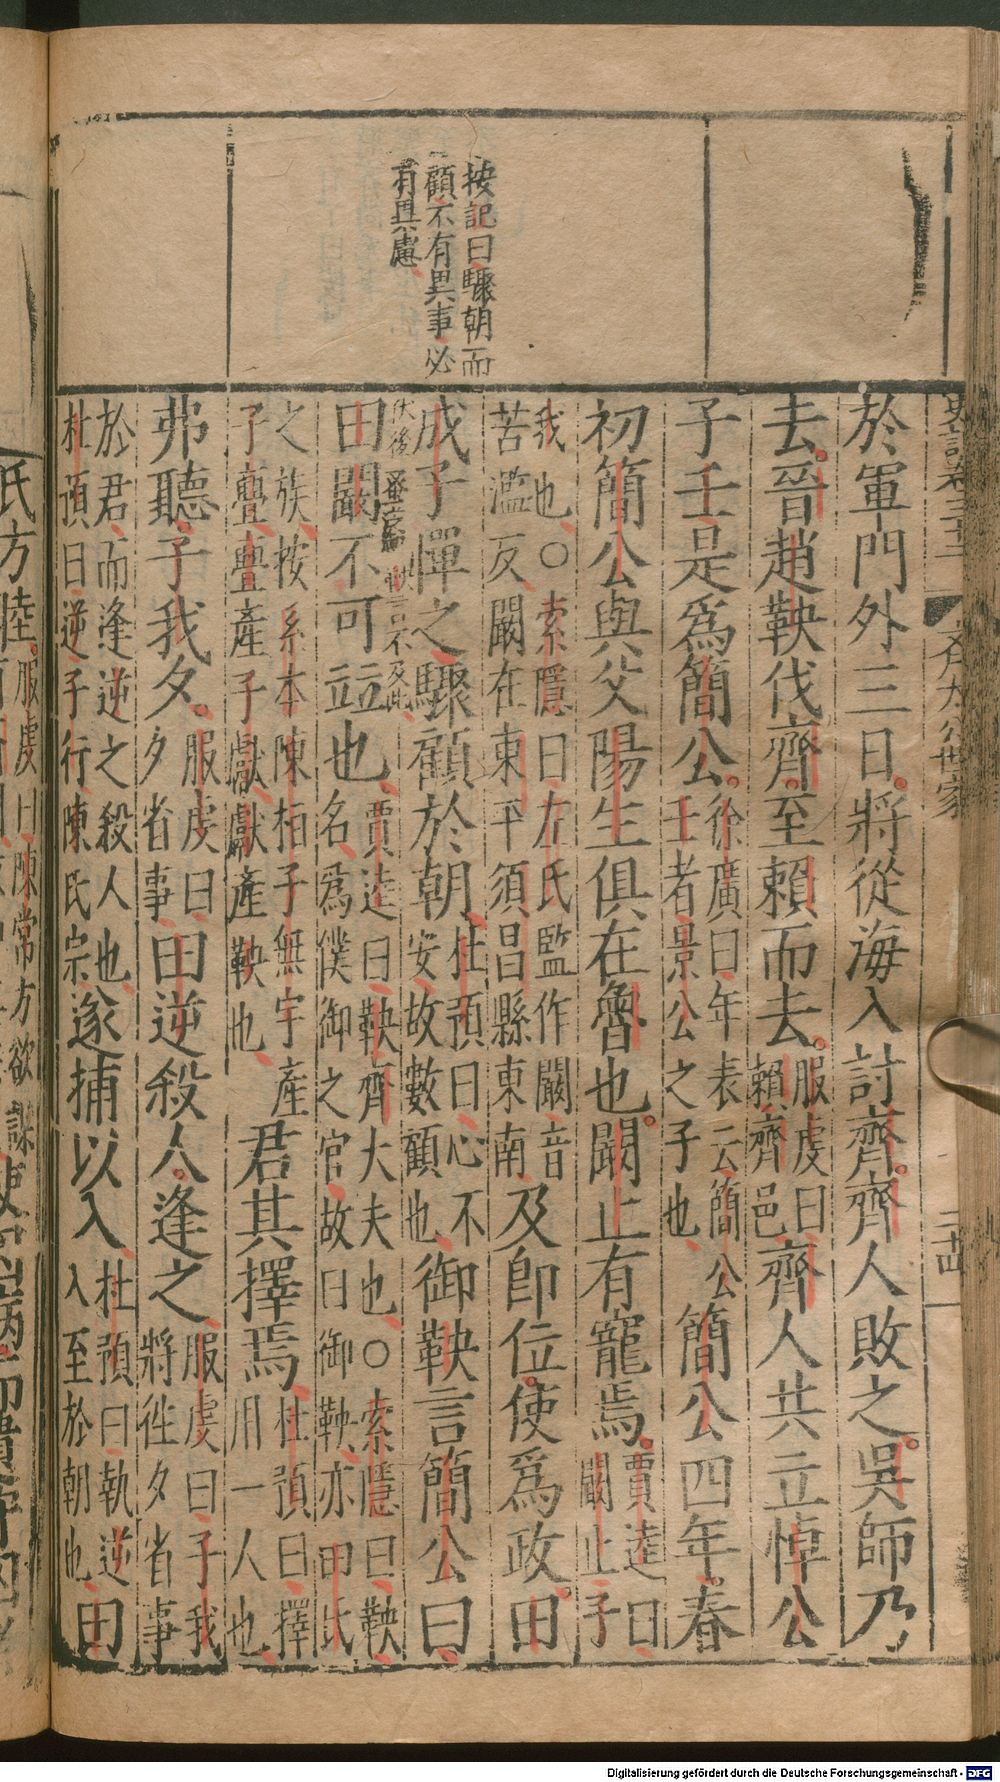 按記曰驟朝而
顧不有異事必
有異慮
於軍門外三日將從海入討齊齊人敗之吳師乃
去晉趙鞅伐齊至賴而去服虔曰賴齊邑齊人共立悼公
子壬是爲簡公徐廣曰年表云簡公壬者景公之子也簡公四年春
初簡公與父陽生俱在魯也闞止有寵焉賈逵曰闞止子
我也○索隱曰左氏監作闞音苦濫反闞在東平須昌縣東南及即位使爲政田
成子憚之驟顧於朝杜預曰心不安故數顧也御鞅言簡公曰
田闞不可竝也賈逵曰鞅齊大夫也○索隱曰鞅名爲僕御之官故曰御鞅亦田氏
之族按系本陳桓子無宇產子亹亹產子獻獻產鞅也君其擇焉杜預曰擇用一人也
弗聽子我夕服虔曰夕省事田逆殺人逢之服虔曰子我將往夕省事
於君而逢逆之殺人也杜預曰逆子行陳氏宗遂捕以入杜預曰執逆入至於朝也田
史記卷三十二
齊太公世家
二十四
氏方睦服虔曰陳常方欲謀
Digitalisierung gefördert durch die Deutsche Forschungsgemeinschaft - DFG